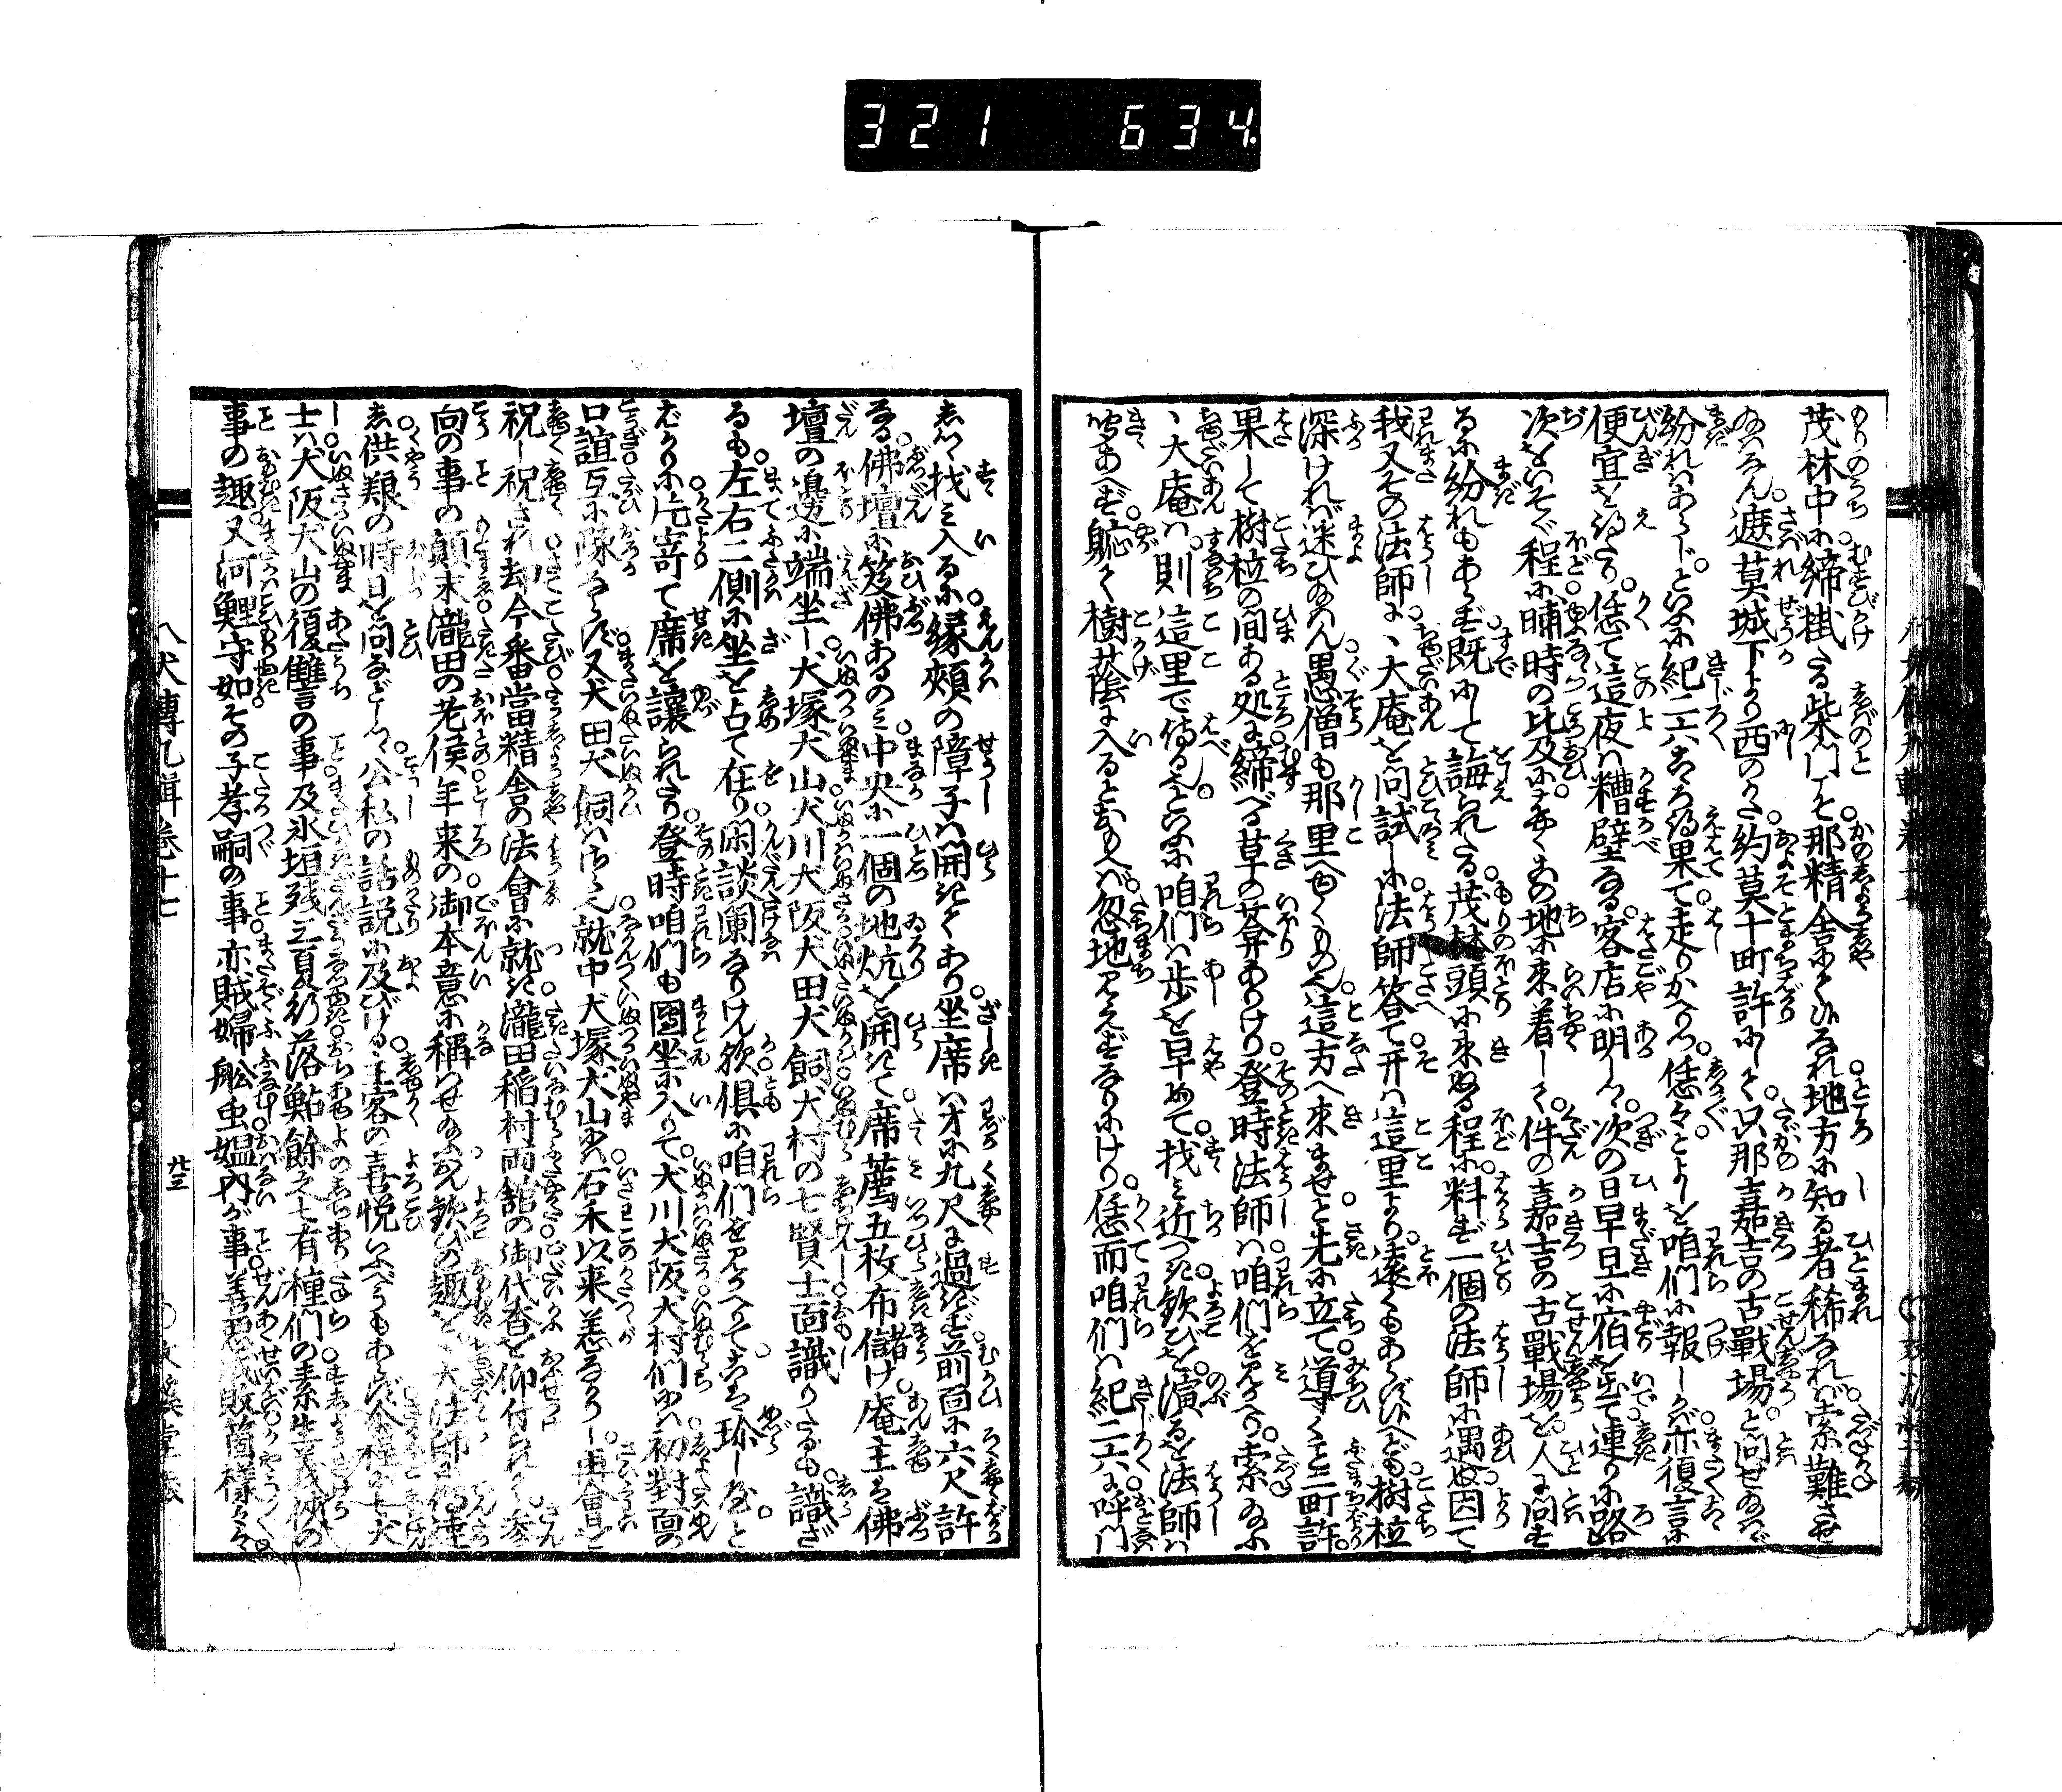 321 634
茂林中に締掛たる柴門こそ那精舎にて候なれ地方に知る者稀なれば索難させ
給ひなん遮莫城下より西のかた約莫十町許にして只那嘉吉の古戰場と問せ給はゞ
紛れはあらじといふに紀二六こゝろ得果て走りかへりつ恁々とよしを咱們に報しかば亦復言に
便宜を得たり恁て這夜は糟壁なる客店に明しつ次の日早旦に宿を出て連りに路
次をいそぐ程に晡時の比及に幸くこの地に來着しく件の嘉吉の古戰場を人に問も
るに紛れもあらず既にして誨られたる茂林頭に來ぬる程に料ず一個の法師に遇ぬ因て
我又その法師に丶大庵を問試しに法師答て开は這里より遠くもあらず候へども樹柆
深ければ迷ひ給はん愚僧も那里へゆくものなり這方へ來ませと先に立て導くこと二町許
果して樹柆の間ある処に締べる草の菴ありけり登時法師は咱們を見かへり索給ふ
丶大庵は則這里で侍るといふに咱們は歩を早めて找み近づき歓びを演るを法師は
聞あへず軈て樹蔭に入るとおもへば忽地見えずなりにけり恁而咱們は紀二六に呼門
さして找み入るに縁頬の障子は開きてあり坐席は才に九尺に過ぎず前面に六尺許
なる佛壇に笈佛あるのみ中央に一個の地炕を開きて席薦五枚布儲け庵主は佛
壇の邊に端坐し犬塚犬山犬川犬阪犬田犬飼犬村の七賢士面識りたるも識ざ
るも左右二側に坐を占て在り閑談闌なりけん歓倶に咱們を見かへりてこは珍しやと
ばかりに片寄て席を讓られたり登時咱們も圑坐に入りて犬川犬阪犬村們には初對面の
口誼互に陳るならず又犬田犬飼はさら也就中犬塚犬山に石禾以来恙なかりし再會を
祝し祝され却今番當精舎の法會に就き瀧田稲村両舘の御代香を仰付られて参
向の事の顛末瀧田の老侯年来の御本意に稱はせ給ふ歓びの趣を丶大法師に傳達
さ供粮の時日を問などしつ公私の話説に及びける主客の喜悦いふべうもあらず余程に七犬
士は犬阪犬山の復讐言の事及氷垣残三夏行落鮎餘之七有種們の素生義侠の
事の趣又河鯉守如その子孝嗣の事亦賊婦舩虫媼内が事善悪成敗箇様々々
八犬傳九輯卷十七
廿三